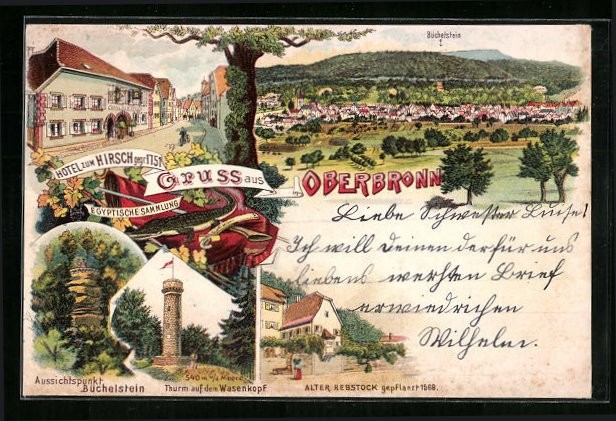 Büchelstein
HOTEL ZUM HIRSCH gegr. 1751
GRUSS aus OBERBRONN
EGYPTISCHE SAMMLUNG
Liebe Schwester Luise!
Ich will deinen derfür uns
liebens werhten Brief
erwiedrichen
Wilhelm.
Aussichtspunkt
Büchelstein
540 m ü/d Meere
Thurm auf dem Wasenkopf
ALTER REBSTOCK gepflanzt 1568.